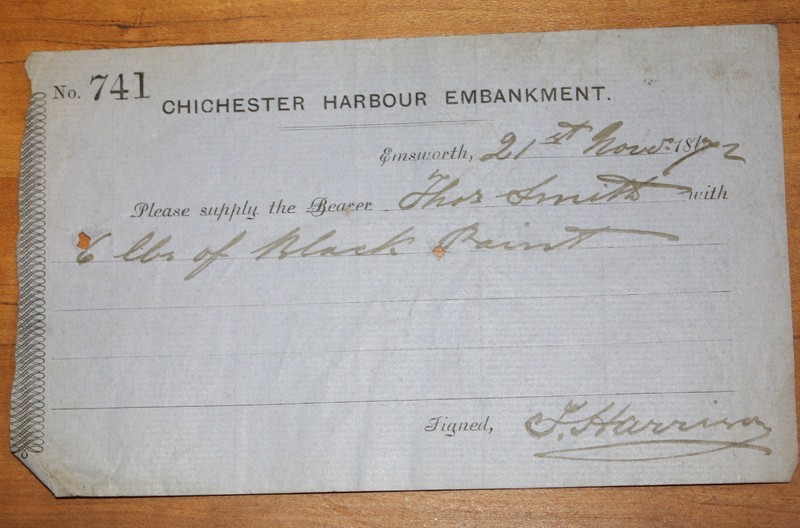 No. 741
CHICHESTER HARBOUR EMBANKMENT.
Emsworth, 21st Novr. 1872
Please supply the Bearer Thos Smith with
6 lbs of Black Paint
Signed, J. Harrison